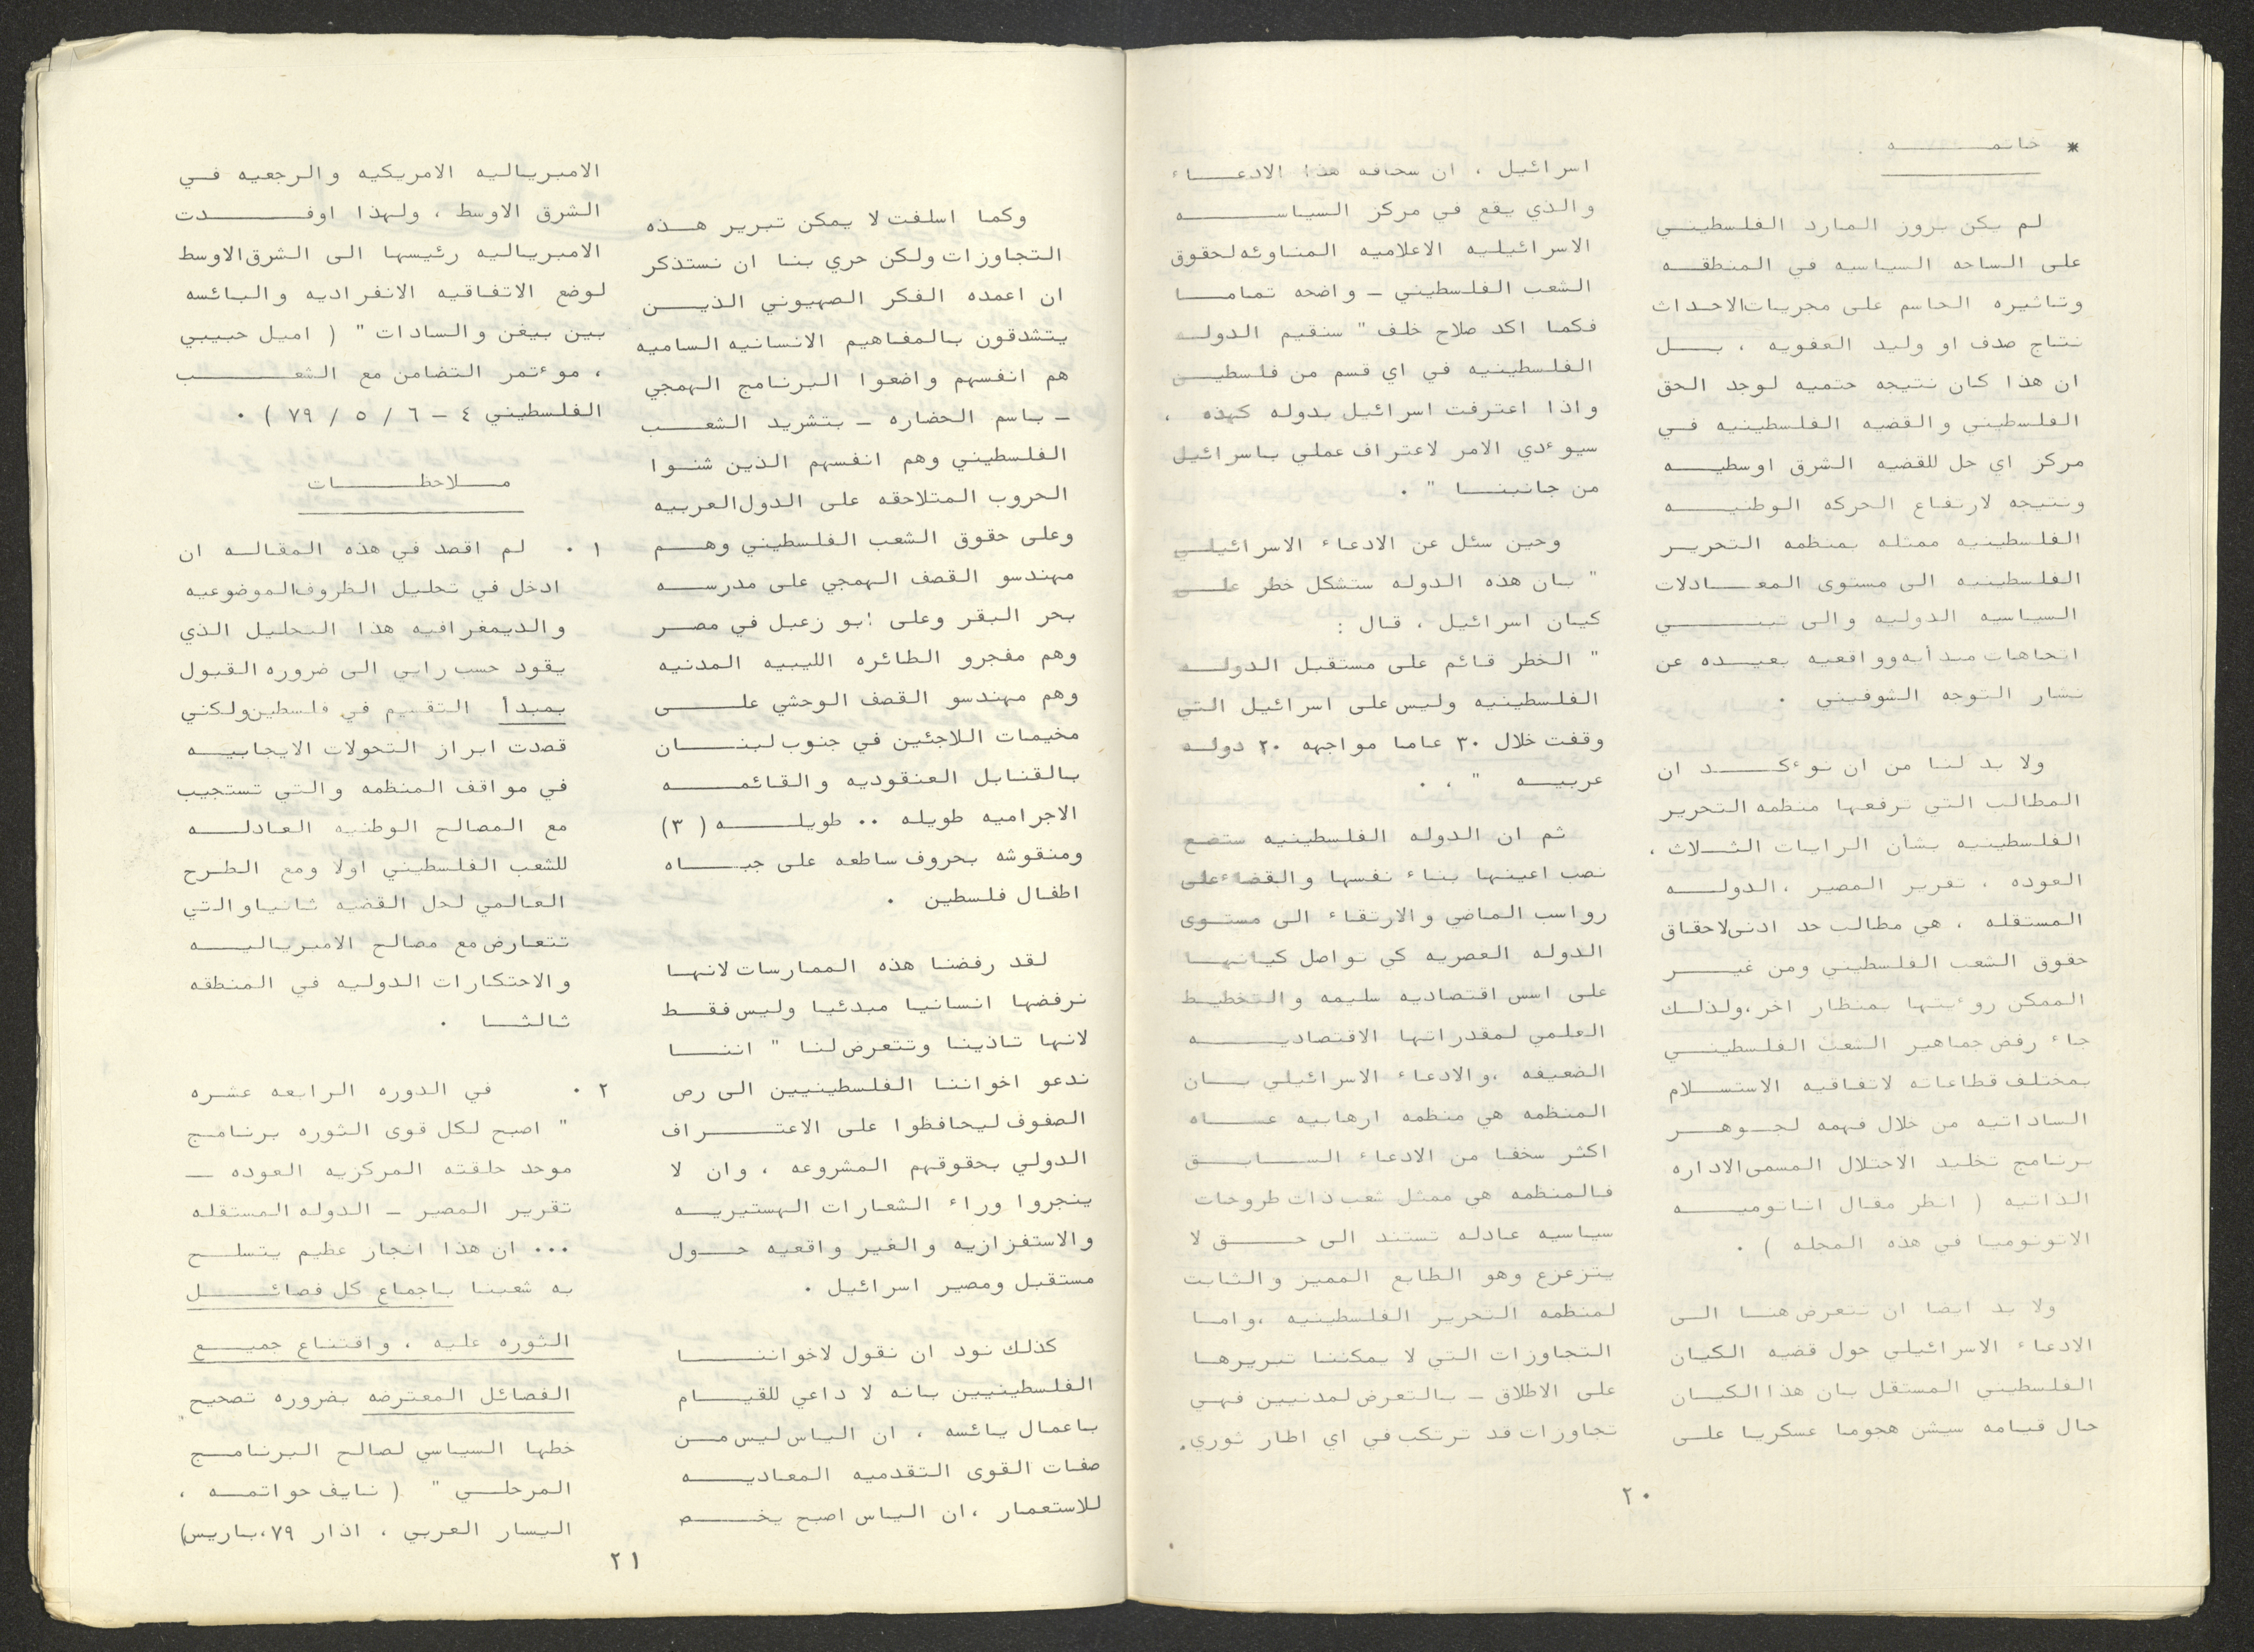 * خاتمــــــه .
لم يكن بروز المارد الفلسطيني
على الساحه السياسيه في المنطقـه
وتاثيره الحاسم على مجريات الاحداث
نتاج صدف او وليد العفويه ، بــل
ان هذا كان نتيجه حتميه لوجد الحق
الفلسطيني والقضيه الفلسطينيه فـي
مركز اي حل للقضيه الشرق اوسطيــه
ونتيجه لارتفاع الحركه الوطنيــــه
الفلسطينيه ممثله بمنظمه التحريـر
الفلسطينيه الى مستوى المعــادلات
السياسيه الدوليه والى تبنـــــي
اتجاهات مبدأيه وواقعيه بعيـده عن
نشار التوجه الشوفيني .
ولا بد لنا من ان نوءكـــد ان
المطالب التي ترفعها منظمه التحرير
الفلسطينيه بشأن الرايات الثــلاث ،
العوده ، تقرير المصير ،الدولـــه
المستقله ، هي مطالب حد ادنى لاحقاق
حقوق الشعب الفلسطيني ومن غيـــر
الممكن روءيتها بمنظار اخر ،ولذلـك
جاء رفض جماهير الشعب الفلسطينــي
بمختلف قطاعاته لاتفاقيه الاستسـلام
الساداتيه من خلال فهمه لجــوهــر
برنامج تخليد الاحتلال المسمى الاداره
الذاتيه ( انظر مقال اناتوميــــه
الاتونوميا في هذه المجله ) .
ولا بد ايضا ان نتعرض هنــا الـى
الادعاء الاسرائيلي حول قضيه الكيان
الفلسطيني المستقل بان هذا الكيـان
حال قيامه سيشن هجوما عسكريا علـى
اسرائيل ، ان سخافه هذا الادعــاء
والذي يقع في مركز السياســــــه
الاسرائيليه الاعلاميه المناوئه لحقوق
الشعب الفلسطيني - واضحه تمامــا
فكما اكد صلاح خلف " سنقيم الدولـه
الفلسطينيه في اي قسم من فلسطيــن
واذا اعترفت اسرائيل بدوله كهذه ،
سيوءدي الامر لاعتراف عملي باسرائيل
من جانبنــا " .
وحين سئل عن الادعاء الاسرائيلـي
" بان هذه الدوله ستشكل خطر علــى
كيان اسرائيل ، قال :
" الخطر قائم على مستقبل الدولــه
الفلسطينيه وليس على اسرائيل التي
وقفت خلال ٣٠ عاما مواجهه ٢٠ دولـه
عربيــه " ، .
ثم ان الدوله الفلسطينيه ستضع
نصب اعينها بناء نفسها والقضاء على
رواسب الماضي والارتقاء الى مستـوى
الدوله العصريه كي تواصل كيانهـا
على اسس اقتصاديه سليمه والتخطيـط
العلمي لمقدراتها الاقتصاديـــــه
الضعيفه ،والادعاء الاسرائيلي بــان
المنظمه هي منظمه ارهابيه عــــاه
اكثر سخفا من الادعاء الســــابــق
فالمنظمه هي ممثل شعب ذات طروحات
سياسيه عادله تستند الى حـــــق لا
يتزعزع وهو الطابع المميز والثابت
لمنظمه التحرير الفلسطينيه ،وامـا
التجاوزات التي لا يمكننا تبريرهـا
على الاطلاق - بالتعرض لمدنيين فهـي
تجاوزات قد ترتكب في اي اطار ثوري.
٢٠
وكما اسلفت لا يمكن تبرير هــذه
التجاوزات ولكن حري بنا ان نستذكر
ان اعمده الفكر الصهيوني الذيــــن
يتشدقون بالمفاهيم الانسانيه الساميه
هم انفسهم واضعوا البرنامج الهمجي
- باسم الحضاره - بتشريد الشعـــب
الفلسطيني وهم انفسهم الذين شنـوا
الحروب المتلاحقه على الدول العربيه
وعلى حقوق الشعب الفلسطيني وهـــم
مهندسو القصف الهمجي على مدرســه
بحر البقر وعلى ابو زعبل في مصـر
وهم مفجرو الطائره الليبيه المدنيه
وهم مهندسو القصف الوحشي علــــى
مخيمات اللاجئين في جنوب لبنـــان
بالقنابل العنقوديه والقائمــــه
الاجراميه طويله .. طويلــــه ( ٣ )
ومنقوشه بحروف ساطعه على جبــــاه
اطفال فلسطين .
لقد رفضنا هذه الممارسات لانهـا
نرفضها انسانيا مبدئيا وليس فقـط
لانها تاذينا وتتعرض لنا " اننـــا
ندعو اخواننا الفلسطينيين الى رص
الصفوف ليحافظوا على الاعتــــراف
الدولي بحقوقهم المشروعه ، وان لا
ينجروا وراء الشعارات الهستيريـــه
والاستفزازيه والغير واقعيه حــول
مستقبل ومصير اسرائيل .
كذلك نود ان نقول لاخواننـــــا
الفلسطينيين بانه لا داعي للقيــام
باعمال يائسه ، ان الياس ليس مــن
صفات القوى التقدميه المعاديـــه
للاستعمار ،ان الياس اصبح يخــــص
الامبرياليه الامريكيه والرجعيه فـي
الشرق الاوسط ، ولهذا اوفـــــدت
الامبرياليه رئيسها الى الشرق الاوسط
لوضع الاتفاقيه الانفراديه والبائسه
بين بيغن والسادات " ( اميل حبيبي
، موءتمر التضامن مع الشعـــــــب
الفلسطيني ٤ - ٦ / ٥ / ٧٩ ) .
مــلاحظـــــات
١ . لم اقصد في هذه المقالـه ان
ادخل في تحليل الظروف الموضوعيه
والديمغرافيه هذا التحليل الذي
يقود حسب رايي الى ضروره القبول
بمبدأ التقسيم في فلسطين ولكني
قصدت ابراز التحولات الايجابيـــه
في مواقف المنظمه والتي تستجيب
مع المصالح الوطنيه العـادلــه
للشعب الفلسطيني اولا ومع الطـرح
العالمي لحل القضيه ثانيا والتي
تتعارض مع مصالح الامبرياليـــه
والاحتكارات الدوليه في المنطقه
ثالثــا .
٢ . في الدوره الرابعه عشـره
" اصبح لكل قوى الثوره برنامـج
موحد حلقته المركزيه العوده -
تقرير المصير - الدوله المستقله
... ان هذا انجاز عظيم يتسلـح
به شعبنا باجماع كل فصائــــل
الثوره عليه ، واقتناع جميــع
الفصائل المعترضه بضروره تصحيح
خطها السياسي لصالح البرنامــج
المرحلــي " ( نايف حواتمـــه ،
اليسار العربي ، اذار ٧٩،باريس)
٢١